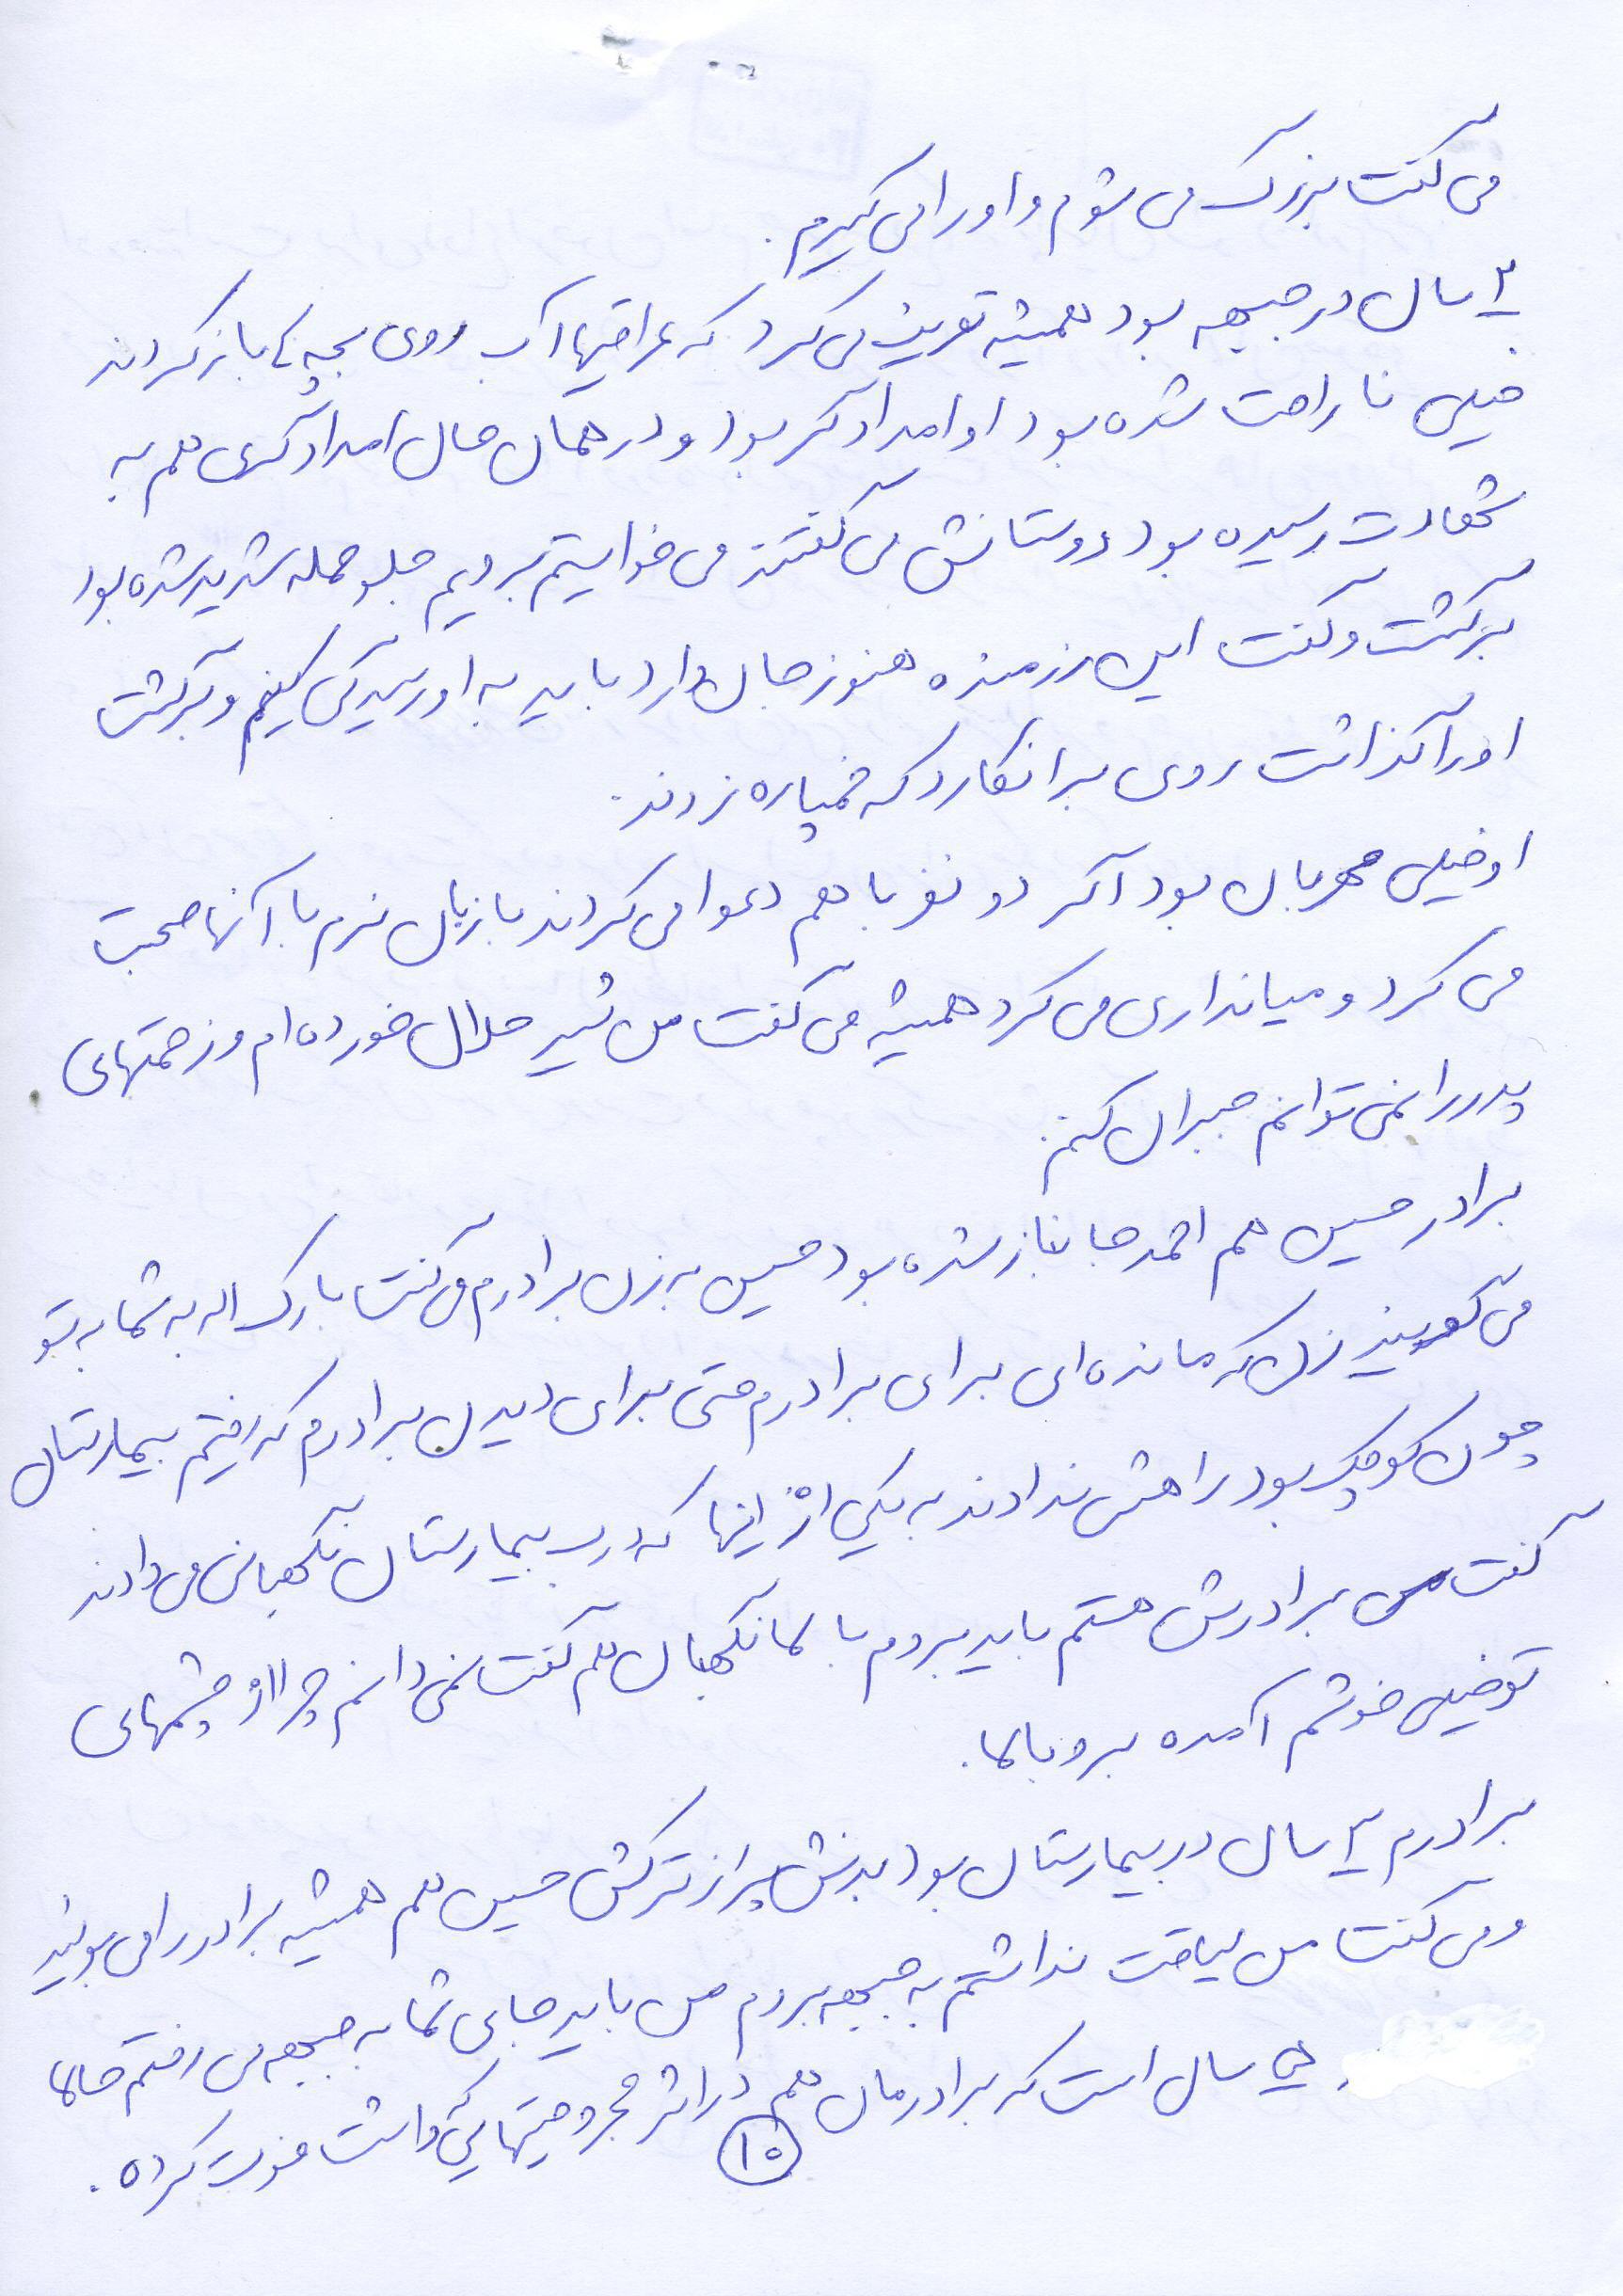 می گفت بزرگ می شوم و او را می گیرم.
۲ سال در جبهه بود همیشه تعریف می کرد که عراقیها آب روی بچه ها باز کردند
خیلی ناراحت شده بود او امدادگر بود و در همان حال امدادگری هم به
شهادت رسیده بود دوستانش می گفتند می خواستیم برویم جلو حمله شدید شده بود
برگشت و گفت این رزمنده هنوز جان دارد باید به او رسیدگی کنیم و برگشت
او را گذاشت روی برانکارد که خمپاره زدند.
او خیلی مهربان بود اگر دو نفر با هم دعوا می کردند با زبان نرم با آنها صحبت
می کرد و میانداری می کرد همیشه می گفت من شیر حلال خورده ام و زحمتهای
پدر را نمی توانم جبران کنم.
برادر حسین هم احمد جانباز شده بود حسین به زن برادرم می گفت بارک اله به شما به تو
می گویند زن که مانده ای برای برادرم حتی برای دیدن برادرم که رفتیم بیمارستان
چون کوچک بود راهش ندادند به یکی از اینها که درب بیمارستان نگهبانی می دادند
گفت من برادرش هستم باید بروم بالا نگهبان هم گفت نمی دانم چرا از چشمهای
تو خیلی خوشم آمده برو بالا.
برادرم ۲ سال در بیمارستان بود بدنش پر از ترکش حسین هم همیشه برادر را می بوئید
و می گفت من لیاقت نداشتم به جبهه بروم من باید جای شما به جبهه می رفتم حالا
سال است که برادرمان هم در اثر مجروحیتهایی که داشت فوت کرده.
۱۰